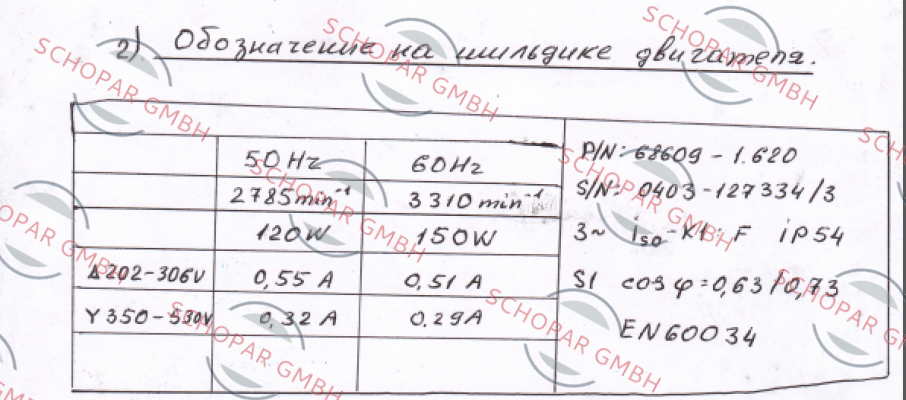 2) Обозначение на шильдике двигателя.
50 Hz 60 Hz
2785 min⁻¹ 3310 min⁻¹
120 W 150 W
Δ 202-306V 0,55 A 0,51 A
Y 350-530V 0,32 A 0.29A
P/N: 68609-1.620
S/N: 0403-127334/3
3~ iso-Kl: F iP54
S1 cos φ=0,63/0,73
EN60034
SCHOPAR GMBH
SCHOPAR GMBH
SCHOPAR GMBH
SCHOPAR GMBH
SCHOPAR GMBH
SCHOPAR GMBH
SCHOPAR GMBH
SCHOPAR GMBH